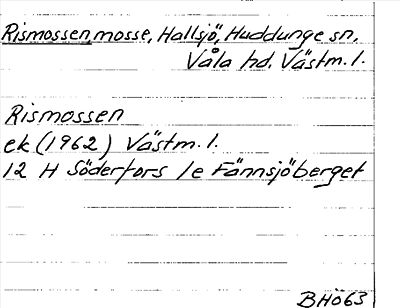 Rismossen, mosse, Hallsjö, Huddunge sn,
Våla hd, Västm. l.
Rismossen
ek (1962) Västm. l.
12 H Söderfors 1e Fännsjöberget
BHö63